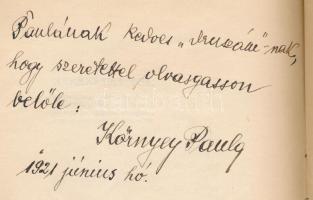 Paulának kedves
hogy szeretettel olvasgasson
belőle:
Környey Paula
1921 június hó.